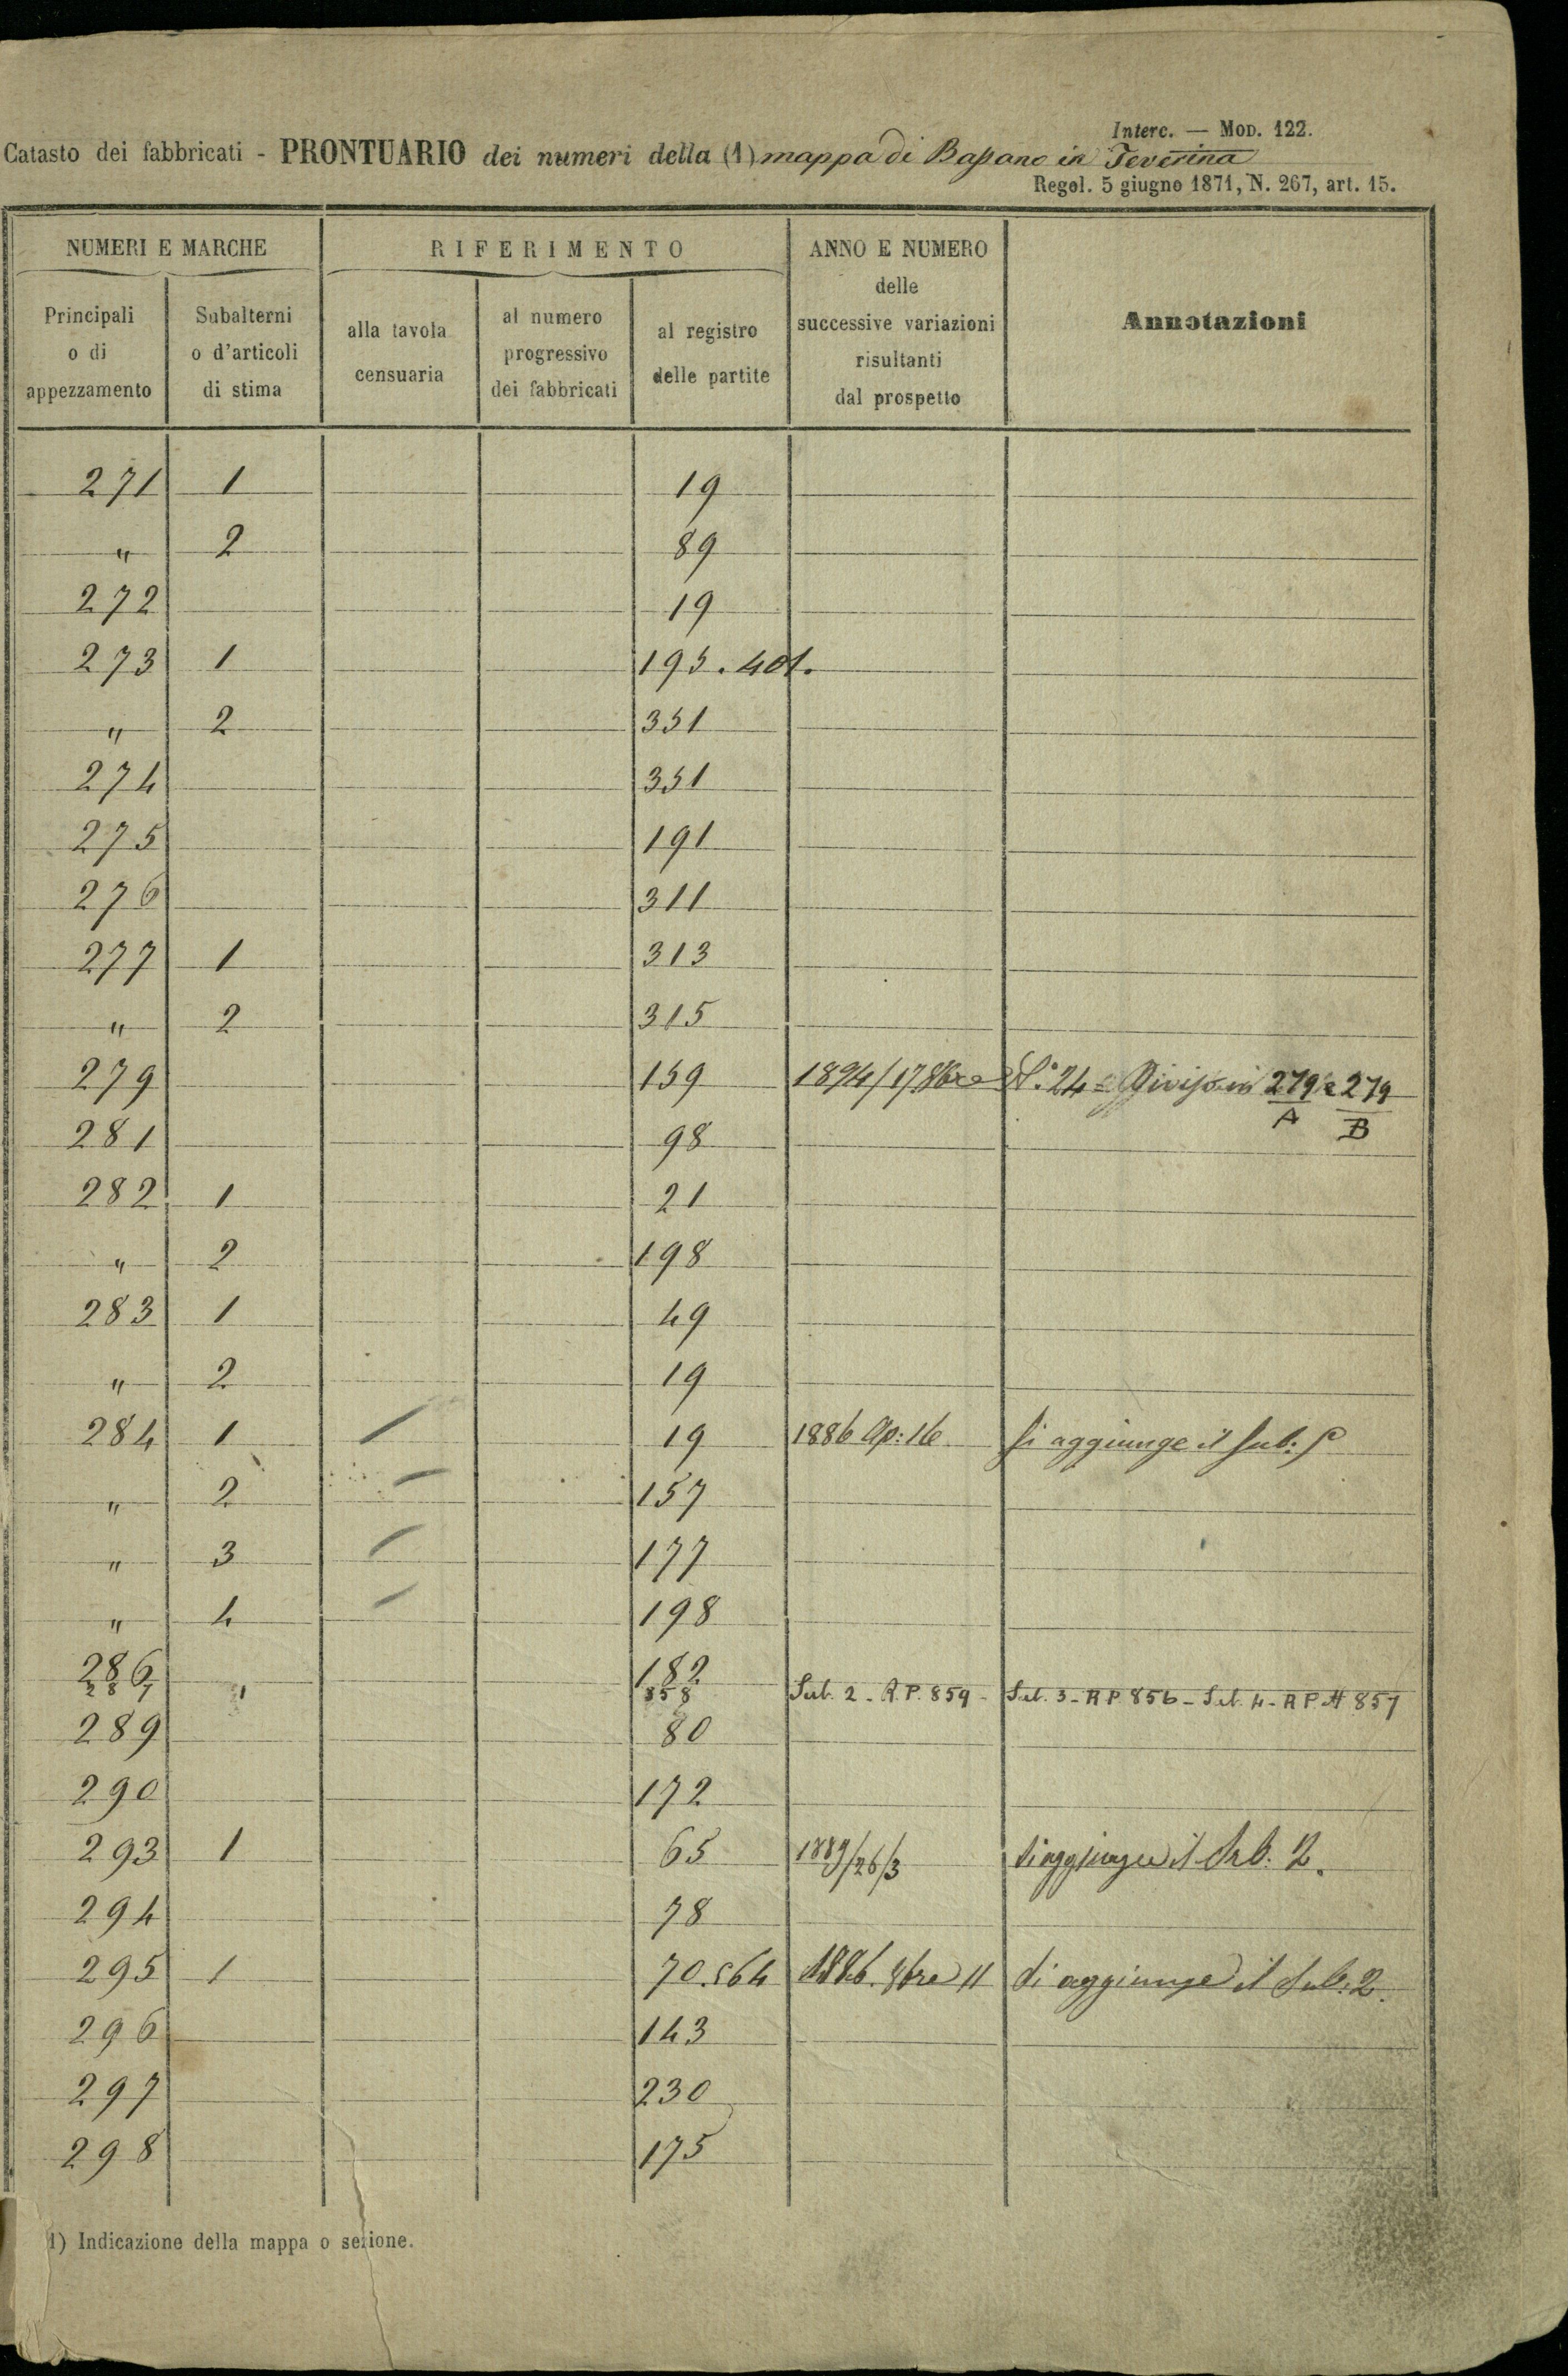 Interc. — Mod. 122.
Catasto dei fabbricati - PRONTUARIO dei numeri della (1) mappa di Bassano in Teverina
Regol. 5 giugno 1871, N. 267, art. 15.
NUMERI E MARCHE
RIFERIMENTO
ANNO E NUMERO
delle
successive variazioni
risultanti
dal prospetto
Annotazioni
Principali
o di
appezzamento
Subalterni
o d'articoli
di stima
alla tavola
censuaria
al numero
progressivo
dei fabbricati
al registro
delle partite
271 1 19
" 2 89
272 19
273 1 195. 401.
" 2 351
274 351
275 191
276 311
277 1 313
" 2 315
279 159 1894/17 8bre N.° 24 = Diviso in 279/A e 279/B
281 98
282 1 21
" 2 198
283 1 49
" 2 19
284 1 19 1886 Ap: 16 Si aggiunge il Sub:
" 2 157
" 3 177
" 4 198
286 182
287 1 858 Sub. 2 - R.P. 859 - Sub. 3 - R P 856 - Sub. 4 - R P N 857
289 80
290 172
293 1 65 1889/26/3 Si aggiunge il Sub. 2.
294 78
295 1 70. 564 1886. 8bre 11 Si aggiunge il Sub: 2.
296 143
297 230
298 175
1) Indicazione della mappa o sezione.